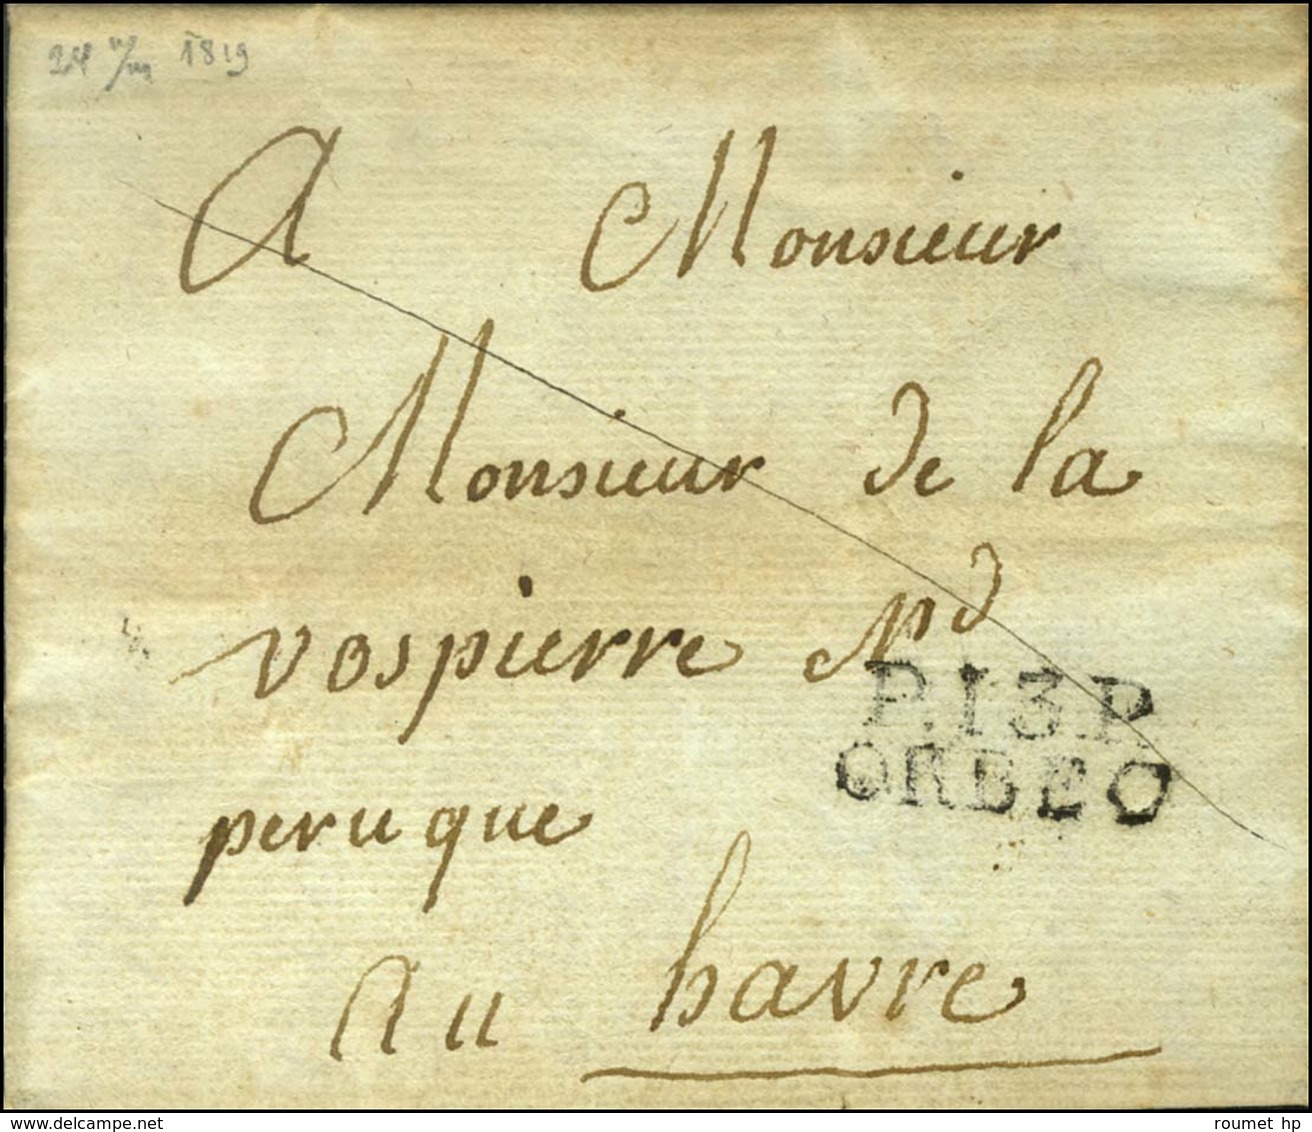 1819
A Monsieur
Monsieur de la
vospierre Md
P.13.P.
ORBEC
peruque
Au havre
www.delcampe.net
roumet hp